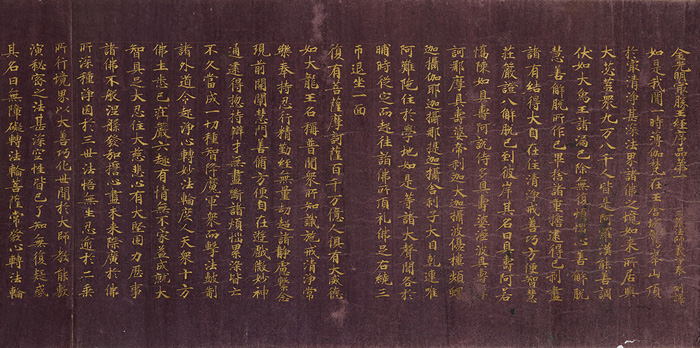 金光明最勝王經序品第一 三藏法師義淨奉 制譯
如是我聞一時薄伽梵在王舍城鷲峯山頂
於最清淨甚深法界諸佛之境如來所居與
大苾芻衆九万八千人皆是阿羅漢能善調
伏如大象王諸漏已除無復煩惱心善解脫
慧善解脫所作已畢捨諸重擔逮得己利盡
諸有結得大自在住清淨戒善巧方便智慧
莊嚴證八解脫已到彼岸其名曰具壽阿若
憍陳如具壽阿說侍多具壽婆濕波具壽摩
訶那摩具壽婆帝利迦大迦攝波優樓頻螺
迦攝伽耶迦攝那提迦攝舍利子大目乾連唯
阿難陀住於學地如是等諸大聲聞各於
晡時從定而起往詣佛所頂禮佛足右繞三
帀退坐一面
復有菩薩摩訶薩百千万億人俱有大威德
如大龍王名稱普聞衆所知識施戒清淨常
樂奉持忍行精勤經無量劫超諸靜慮繫念
現前開闡慧門善修方便自在遊戲微妙神
通逮得揔持辯才無盡斷諸煩惱累染皆亡
不久當成一切種智降魔軍衆而擊法鼓制
諸外道令起淨心轉妙法輪度人天衆十方
佛土悉已莊嚴六趣有情無不蒙益成就大
智具足大忍住大慈悲心有大堅固力歷事
諸佛不般涅槃發弘誓心盡未來際廣於佛
所深種淨因於三世法悟無生忍逾於二乘
所行境界以大善巧化世間於大師教能敷
演秘密之法甚深空性皆已了知無復疑惑
其名曰無障礙轉法輪菩薩常發心轉法輪